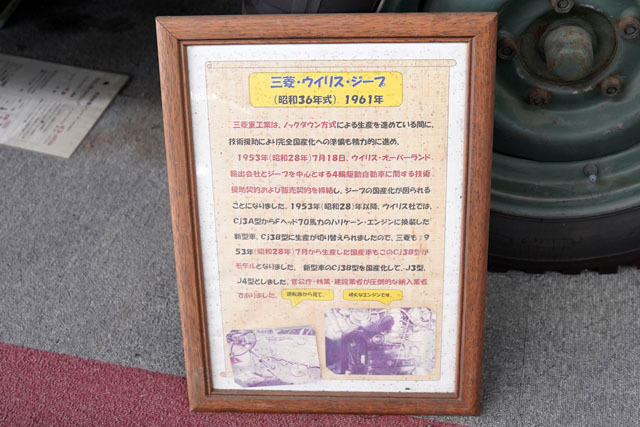 三菱・ウイリス・ジープ
(昭和36年式) 1961年
三菱重工業は、ノックダウン方式による生産を進めている間に、
技術援助により完全国産化への準備も精力的に進め、
1953年(昭和28年)7月18日、ウイリス・オーバーランド
輸出会社とジープを中心とする4輪駆動自動車に関する技術
援助契約および販売契約を締結し、ジープの国産化が図られる
ことになりました。1953年(昭和28)年以降、ウイリス社では、
Cj3A型からFヘッド70馬力のハリケーン・エンジンに換装した
新型車、Cj3B型に生産が切り替えられましたので、三菱も19
53年(昭和28年)7月から生産した国産車もこのCj3B型が
モデルとなりました。 新型車のCj3B型を国産化して、J3型、
J4型としました。官公庁・林業・建設業者が圧倒的な納入業者
でありました。
運転席から見て、
頑丈なエンジンです。